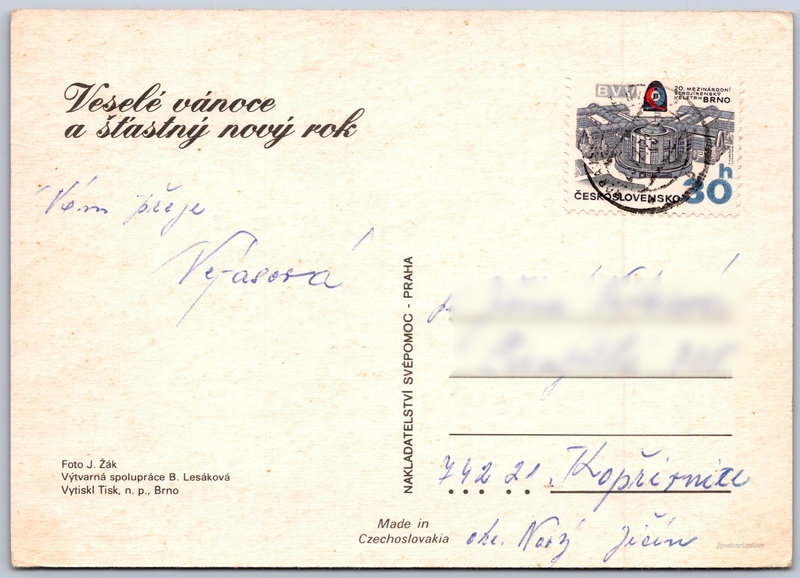 Veselé vánoce
a šťastný nový rok
Vám přeje
BVV
20. MEZINÁRODNÍ
STROJÍRENSKÝ
VELETRH BRNO
ČESKOSLOVENSKO
30h
NAKLADATELSTVÍ SVÉPOMOC - PRAHA
742 21 Kopřivnice
okr. Nový Jičín
Foto J. Žák
Výtvarná spolupráce B. Lesáková
Vytiskl Tisk, n. p., Brno
Made in
Czechoslovakia